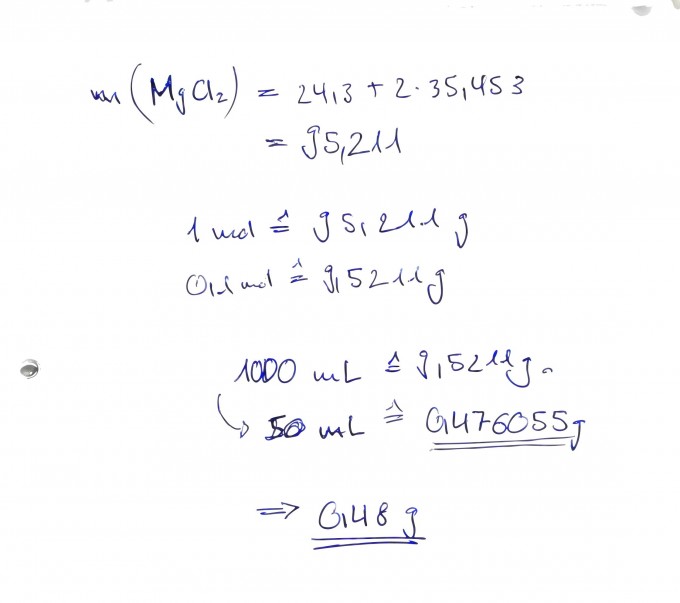 m (MgCl₂) = 24,3 + 2·35,453
= 95,211
1 mol ≙ 95,211 g
0,1 mol ≙ 9,5211 g
1000 mL ≙ 9,5211 g.
↳ 50 mL ≙ 0,476055 g
⇒ 0,48 g